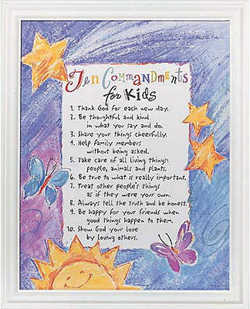 Ten Commandments
for Kids
1. Thank God for each new day.
2. Be thoughtful and kind
in what you say and do.
3. Share your things cheerfully.
4. Help family members
without being asked.
5. Take care of all living things:
people, animals and plants.
6. Be true to what is really important.
7. Treat other people's things
as if they were your own.
8. Always tell the truth and be honest.
9. Be happy for your friends when
good things happen to them.
10. Show God your love
by loving others.